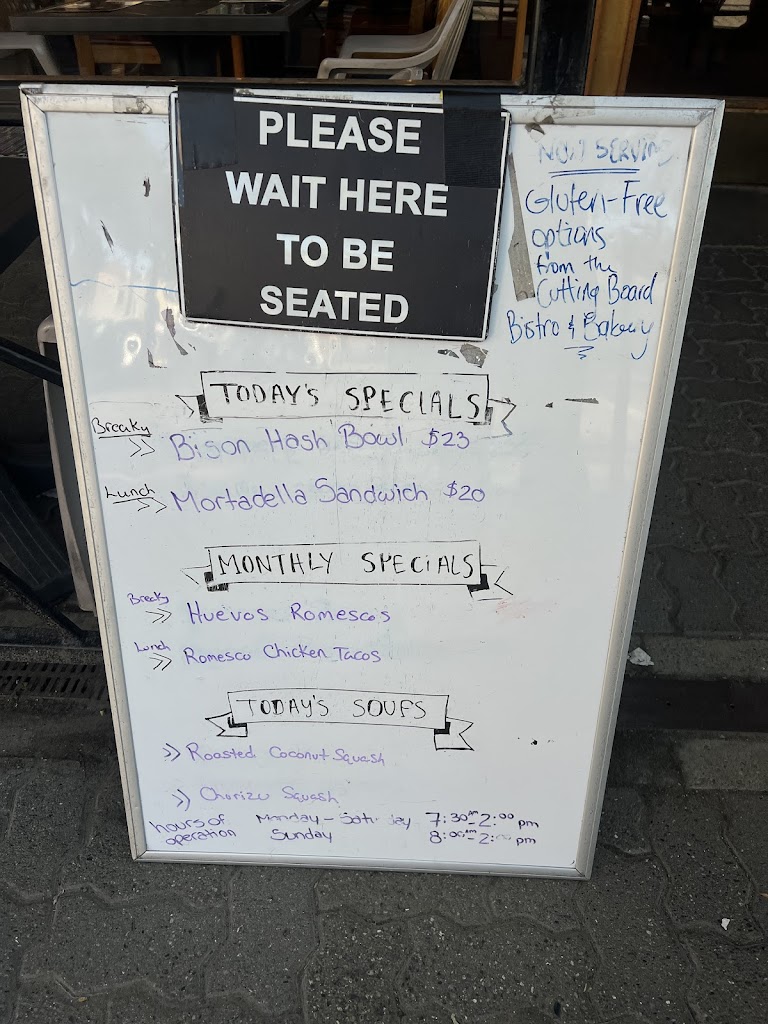 PLEASE
WAIT HERE
TO BE
SEATED
NOW SERVING
Gluten-Free
options
from the
Cutting Board
Bistro & Bakery
TODAY'S SPECIALS
Breaky
>> Bison Hash Bowl $23
Lunch
>> Mortadella Sandwich $20
MONTHLY SPECIALS
Breaky
>> Huevos Romescos
Lunch
>> Romesco Chicken Tacos
TODAY'S SOUPS
>> Roasted Coconut Squash
>> Chorizo Squash
hours of operation
Monday - Saturday 7:30AM-2:00 pm
Sunday 8:00AM-2:00 pm